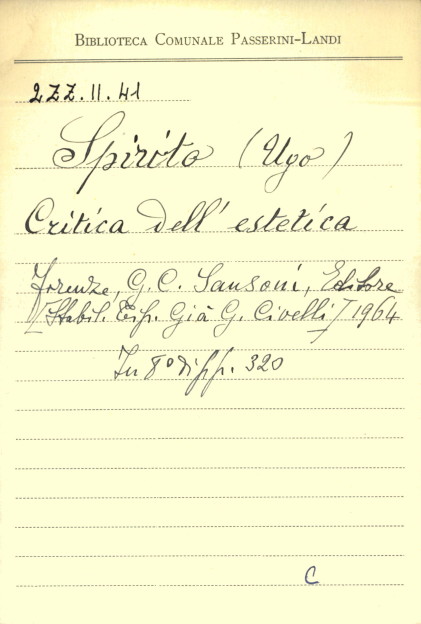 BIBLIOTECA COMUNALE PASSERINI-LANDI
2ZZ.II.41
Spirito (Ugo)
Critica dell' estetica
Firenze, G. C. Sansoni, Editore
[Stabil. Tip. Già G. Civelli] 1964
In 8° di pp. 320
C